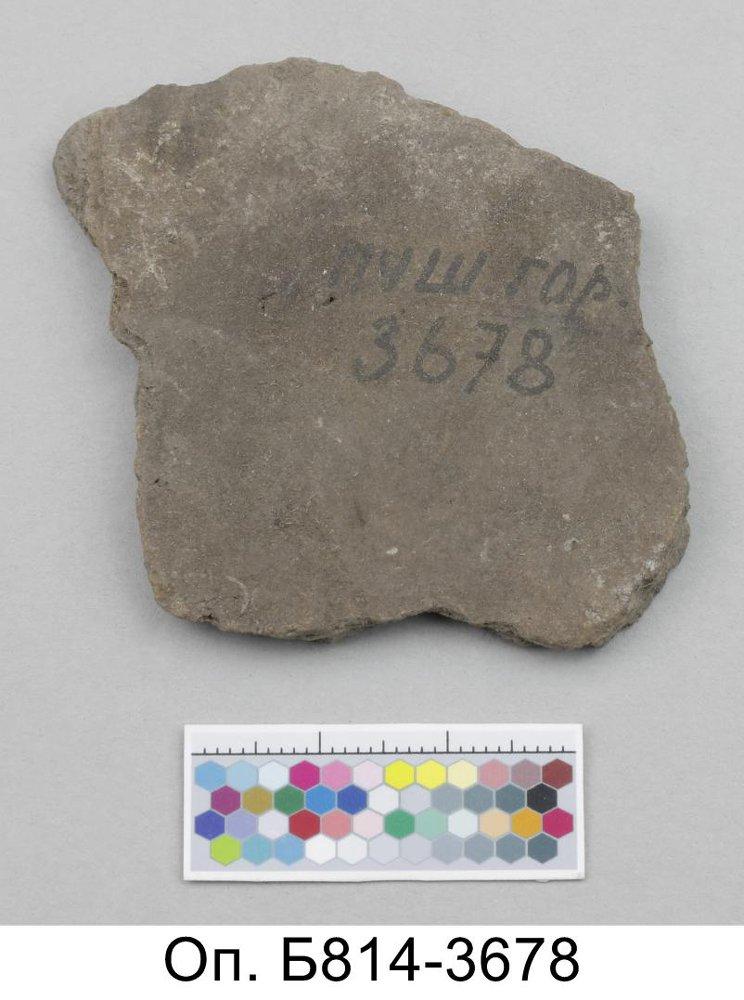 пуш гор.
3678
Оп. Б814-3678